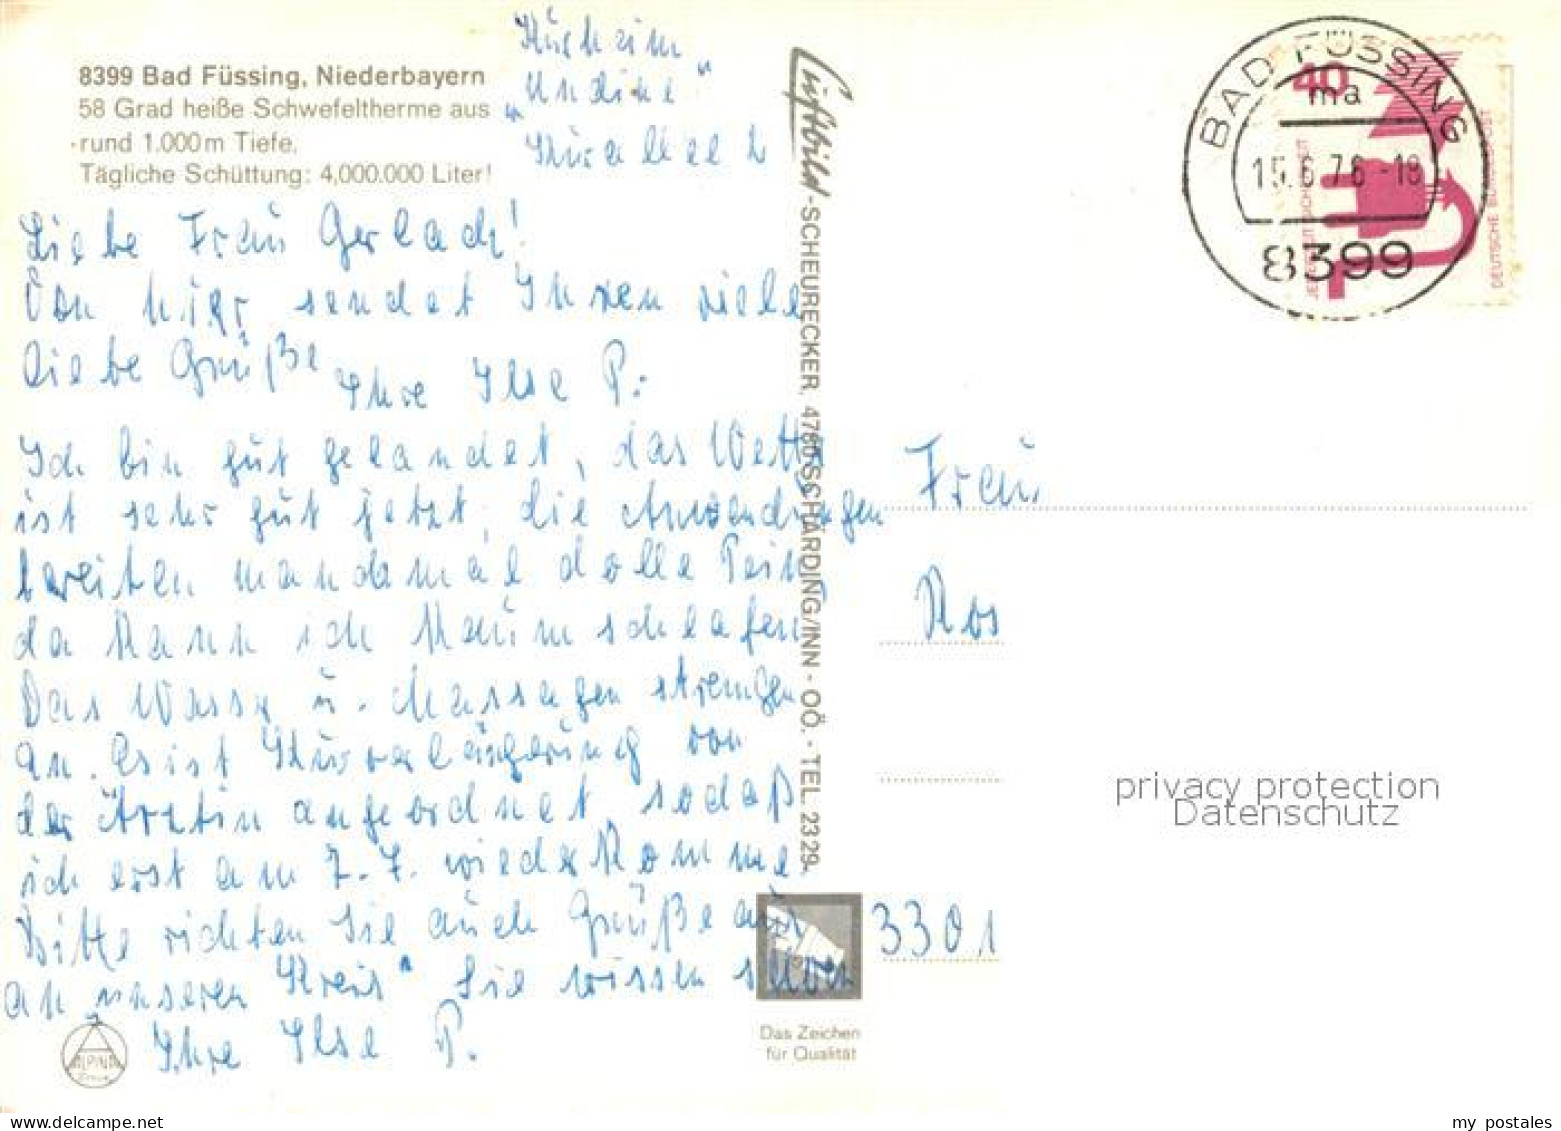 8399 Bad Füssing, Niederbayern
58 Grad heiße Schwefeltherme aus
rund 1.000 m Tiefe.
Tägliche Schüttung: 4,000.000 Liter!
Kurheim
"Undine"
Kurallee 2
Liebe Frau Gerlach!
Von hier sendet Ihnen viele
liebe Grüße
Ihre Ilse P.
Ich bin gut gelandet, das Wetter
ist sehr gut jetzt, die Anwendungen
bereiten manchmal dolle Pein,
da kann ich kaum schlafen.
Das Wasser u. Massagen strengen
an. Es ist Kurverlängerung von
der Ärztin angeordnet, sodaß
ich erst am 7.7. wiederkomme.
Bitte richten Sie auch Grüße aus
an "unseren Kreis" Sie wissen schon
Ihre Ilse P.
ALPINA
Luftbild-SCHEURECKER, 4780 SCHÄRDING/INN - OÖ. - TEL. 2329
Das Zeichen
für Qualität
BAD FÜSSING
ma
15.6.76-18
8399
40
JEDERZEIT SICHERHEIT
DEUTSCHE BUNDESPOST
Frau
Ros
3301
privacy protection
Datenschutz
my postales